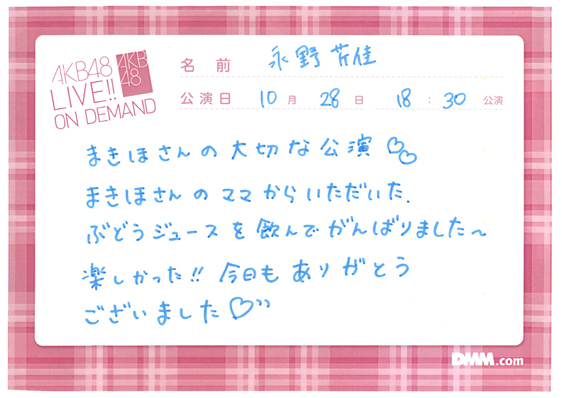 AKB48
LIVE!!
ON DEMAND
AKB
48
名前 永野芹佳
公演日 10月 28日 18:30 公演
まきほさんの大切な公演♡♡
まきほさんのママからいただいた、
ぶどうジュースを飲んでがんばりました〜
楽しかった!! 今日もありがとう
ございました♡))
DMM.com